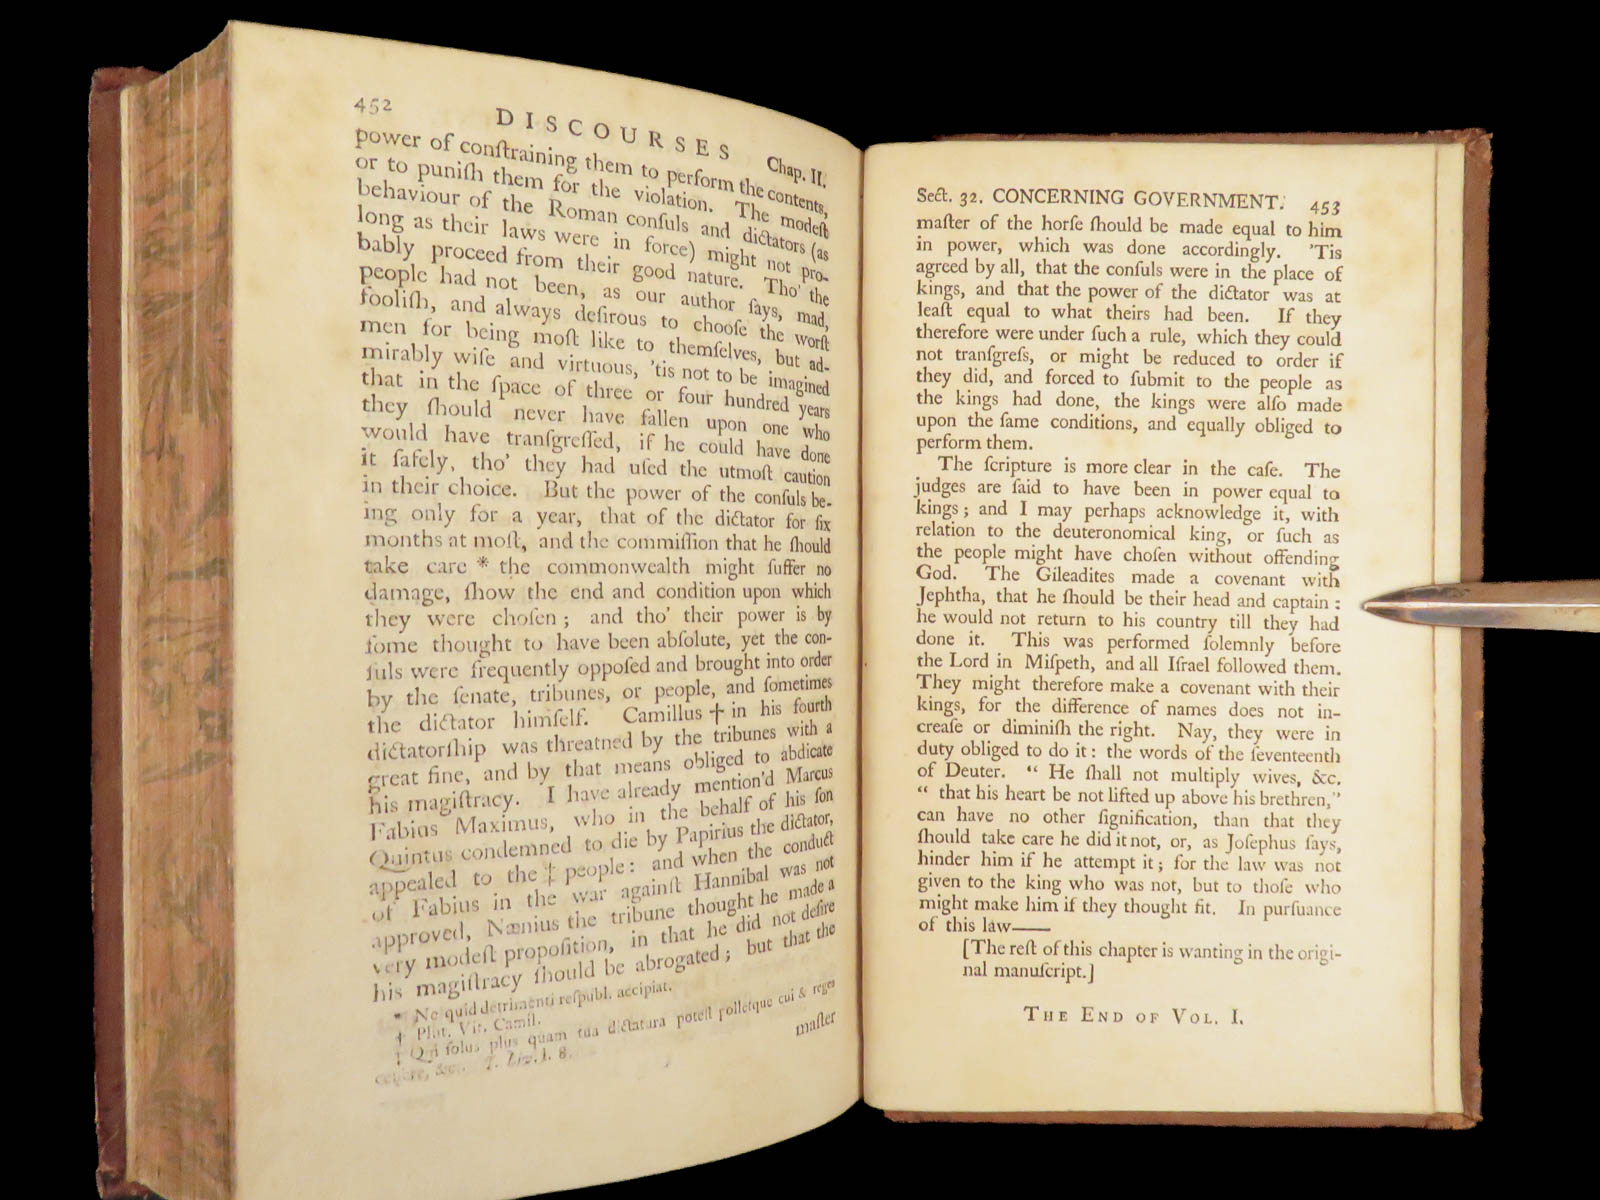 452
DISCOURSES
Chap. II.
power of conſtraining them to perform the contents,
or to puniſh them for the violation. The modeſt
behaviour of the Roman conſuls and dictators (as
long as their laws were in force) might not pro-
bably proceed from their good nature. Tho' the
people had not been, as our author ſays, mad,
fooliſh, and always deſirous to chooſe the worſt
men for being moſt like to themſelves, but ad-
mirably wiſe and virtuous, 'tis not to be imagined
that in the ſpace of three or four hundred years
they ſhould never have fallen upon one who
would have tranſgreſſed, if he could have done
it ſafely, tho' they had uſed the utmoſt caution
in their choice. But the power of the conſuls be-
ing only for a year, that of the dictator for ſix
months at moſt, and the commiſſion that he ſhould
take care * the commonwealth might ſuffer no
damage, ſhow the end and condition upon which
they were choſen; and tho' their power is by
ſome thought to have been abſolute, yet the con-
ſuls were frequently oppoſed and brought into order
by the ſenate, tribunes, or people, and ſometimes
the dictator himſelf. Camillus † in his fourth
dictatorſhip was threatned by the tribunes with a
great fine, and by that means obliged to abdicate
his magiſtracy. I have already mention'd Marcus
Fabius Maximus, who in the behalf of his ſon
Quintus condemned to die by Papirius the dictator,
appealed to the ‡ people: and when the conduct
of Fabius in the war againſt Hannibal was not
approved, Nænius the tribune thought he made a
very modeſt propoſition, in that he did not deſire
his magiſtracy ſhould be abrogated; but that the
* Ne quid detrimenti reſpubl. accipiat.
† Plut. Vit. Camil.
‡ Qui ſolus plus quam tua dictatura poteſt polletque cui & reges
ceſſere, &c. T. Liv. l. 8.
maſter
Sect. 32. CONCERNING GOVERNMENT. 453
maſter of the horſe ſhould be made equal to him
in power, which was done accordingly. 'Tis
agreed by all, that the conſuls were in the place of
kings, and that the power of the dictator was at
leaſt equal to what theirs had been. If they
therefore were under ſuch a rule, which they could
not tranſgreſs, or might be reduced to order if
they did, and forced to ſubmit to the people as
the kings had done, the kings were alſo made
upon the ſame conditions, and equally obliged to
perform them.
The ſcripture is more clear in the caſe. The
judges are ſaid to have been in power equal to
kings; and I may perhaps acknowledge it, with
relation to the deuteronomical king, or ſuch as
the people might have choſen without offending
God. The Gileadites made a covenant with
Jephtha, that he ſhould be their head and captain:
he would not return to his country till they had
done it. This was performed ſolemnly before
the Lord in Miſpeth, and all Iſrael followed them.
They might therefore make a covenant with their
kings, for the difference of names does not in-
creaſe or diminiſh the right. Nay, they were in
duty obliged to do it: the words of the ſeventeenth
of Deuter. “ He ſhall not multiply wives, &c.
“ that his heart be not lifted up above his brethren,”
can have no other ſignification, than that they
ſhould take care he did it not, or, as Joſephus ſays,
hinder him if he attempt it; for the law was not
given to the king who was not, but to thoſe who
might make him if they thought fit. In purſuance
of this law——
[The reſt of this chapter is wanting in the origi-
nal manuſcript.]
THE END OF VOL. I.